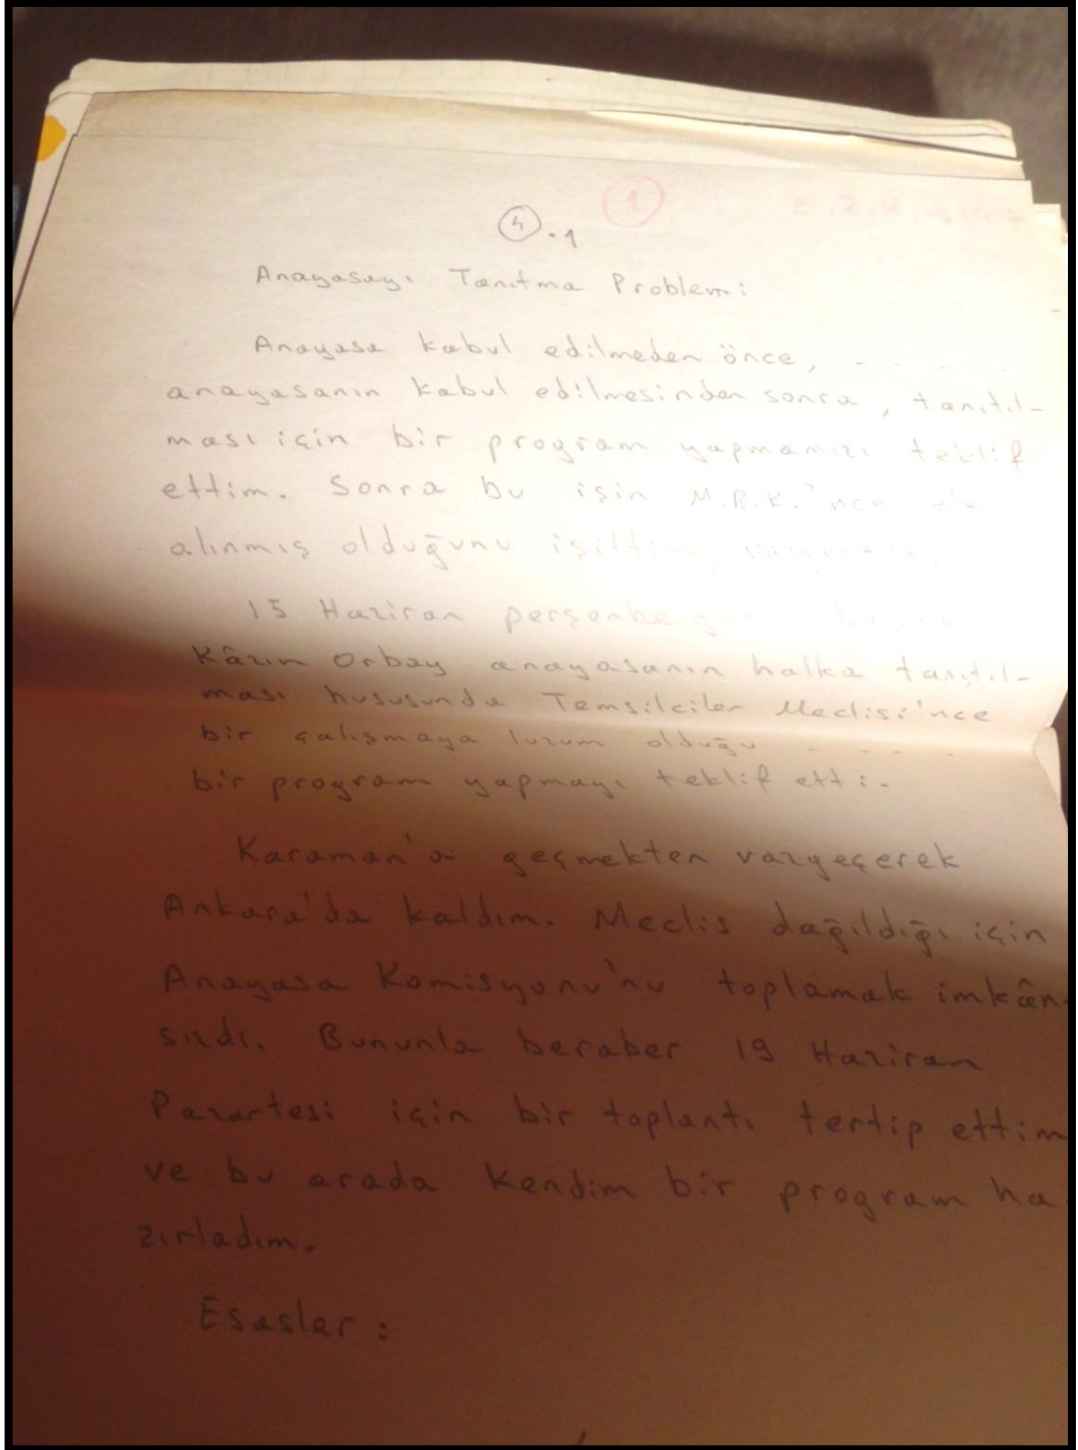 4.1 1
Anayasayı Tanıtma Problemi
Anayasa kabul edilmeden önce, - - - -
anayasanın kabul edilmesinden sonra, tanıtıl-
ması için bir program yapmamızı teklif
ettim. Sonra bu işin M.B.K.'nce ele
alınmış olduğunu işittim, vazgeçtim.
15 Haziran perşembe
Kâzım Orbay anayasanın halka tanıtıl-
ması hususunda Temsilciler Meclisi'nce
bir çalışmaya lüzum olduğu - - - - -
bir program yapmayı teklif etti.
Karaman'a geçmekten vazgeçerek
Ankara'da kaldım. Meclis dağıldığı için
Anayasa Komisyonu'nu toplamak imkân-
sızdı. Bununla beraber 19 Haziran
Pazartesi için bir toplantı tertip ettim
ve bu arada kendim bir program ha
zırladım.
Esaslar :